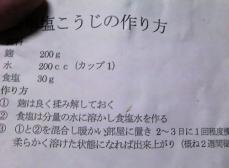 塩こうじの作り方
麹 200g
水 200cc（カップ1）
食塩 30g
作り方
① 麹は良く揉み解しておく
② 食塩は分量の水に溶かし食塩水を作る
③ ①と②を混合し暖かい部屋に置き 2～3日に1回程度
柔らかく溶けた状態になれば出来上がり（概ね2週間